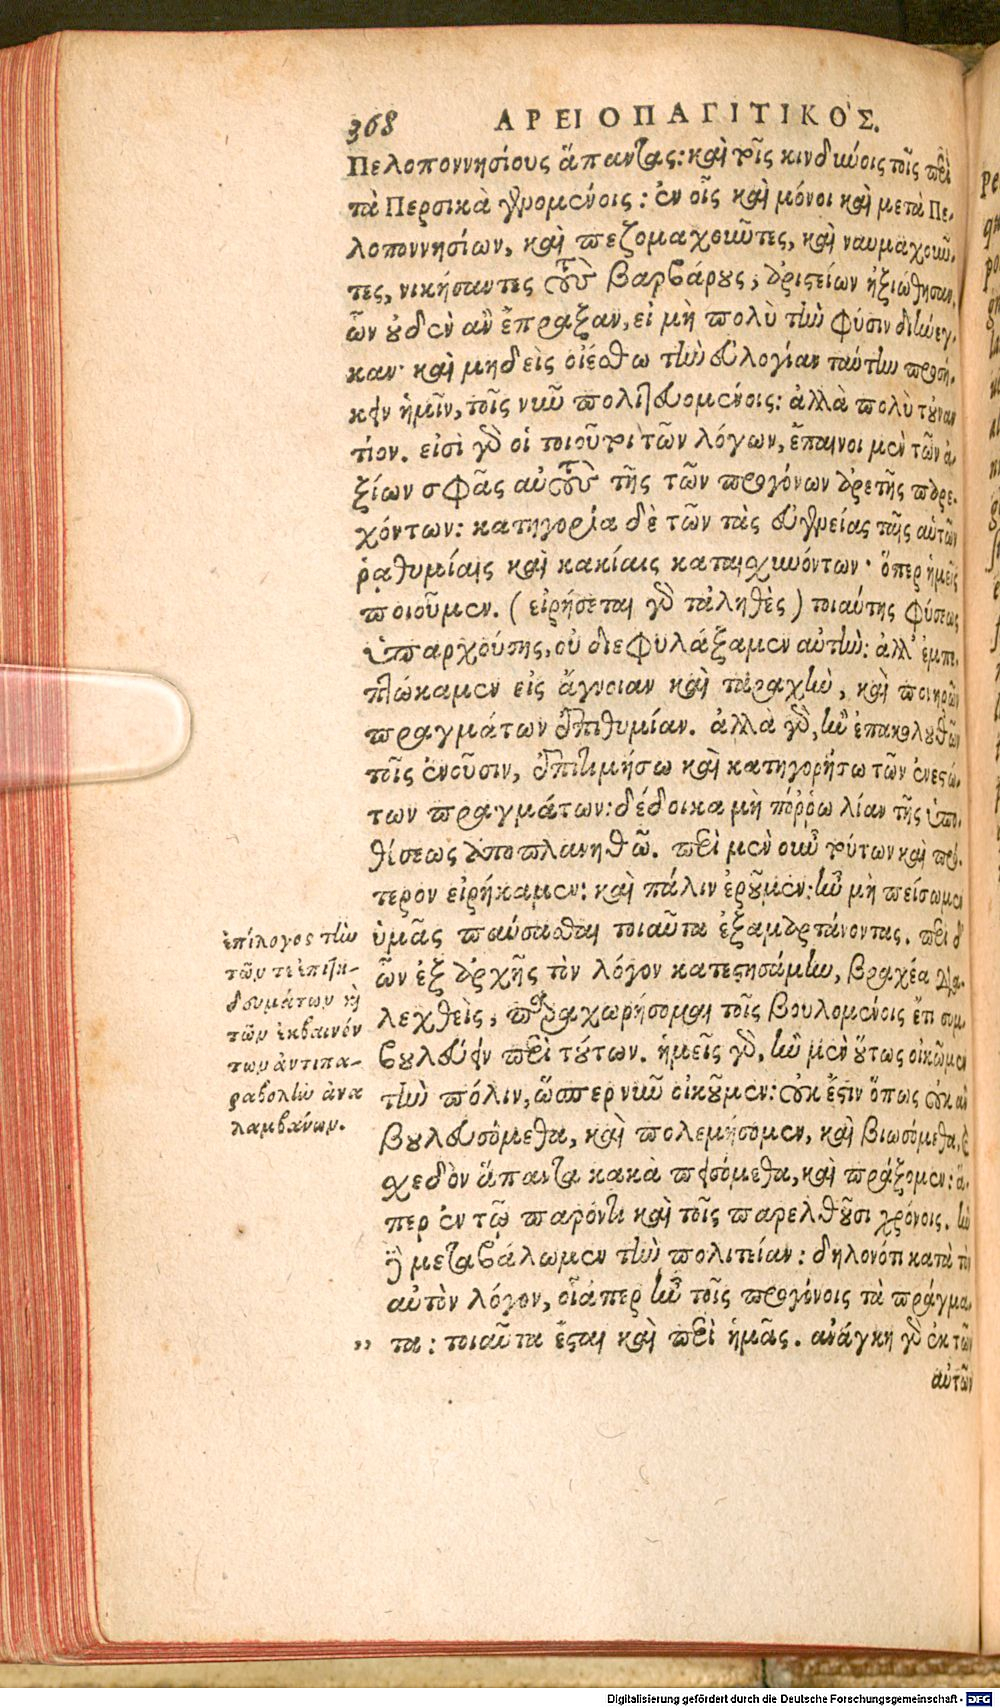 368 ΑΡΕΙΟΠΑΓΙΤΙΚΟΣ.
Πελοποννησίους ἅπαντας: καὶ τοῖς κινδύνοις τοῖς περὶ
τὰ Περσικὰ γενομένοις: ἐν οἷς καὶ μόνοι καὶ μετὰ Πε-
λοποννησίων, καὶ πεζομαχοῦντες, καὶ ναυμαχοῦν-
τες, νικήσαντες τοὺς βαρβάρους, ἀριστείων ἠξιώθησαν,
ὧν οὐδὲν ἂν ἔπραξαν, εἰ μὴ πολὺ τὴν φύσιν διήνεγ-
καν· καὶ μηδεὶς οἰέσθω τὴν εὐλογίαν ταύτην προσή-
κειν ἡμῖν, τοῖς νῦν πολιτευομένοις: ἀλλὰ πολὺ τοὐναν
τίον. εἰσὶ γὰρ οἱ τοιοῦτοι τῶν λόγων, ἔπαινοι μὲν τῶν ἀ-
ξίων σφᾶς αὐτοὺς τῆς τῶν προγόνων ἀρετῆς παρε-
χόντων: κατηγορία δὲ τῶν τὰς εὐγενείας ταῖς αὑτῶν
ῥαθυμίαις καὶ κακίαις καταισχυνόντων· ὅπερ ἡμεῖς
ποιοῦμεν. (εἰρήσεται γὰρ τἀληθὲς) τοιαύτης φύσεως
ὑπαρχούσης, οὐ διεφυλάξαμεν αὐτὴν: ἀλλ' ἐμπε-
πτώκαμεν εἰς ἄγνοιαν καὶ ταραχὴν, καὶ πονηρῶν
πραγμάτων ἐπιθυμίαν. ἀλλὰ γὰρ, ἢν ἐπακολουθῶ
τοῖς ἐνοῦσιν, ἐπιτιμήσω καὶ κατηγορήσω τῶν ἐνεστώ-
των πραγμάτων: δέδοικα μὴ πόῤῥω λίαν τῆς ὑπο-
θέσεως ἀποπλανηθῶ. περὶ μὲν οὖν τούτων καὶ πρό-
τερον εἰρήκαμεν: καὶ πάλιν ἐροῦμεν: ἢν μὴ πείσωμεν
ὑμᾶς παύσασθαι τοιαῦτα ἐξαμαρτάνοντας. περὶ δ'
ὧν ἐξ ἀρχῆς τὸν λόγον κατεστησάμην, βραχέα δια-
λεχθεὶς, παραχωρήσομαι τοῖς βουλομένοις ἔτι συμ-
βουλεύειν περὶ τούτων. ἡμεῖς γὰρ, ἢν μὲν οὕτως οἰκῶμεν
τὴν πόλιν, ὥσπερ νῦν οἰκοῦμεν: οὐκ ἔστιν ὅπως οὐκ αὖ
βουλευσόμεθα, καὶ πολεμήσομεν, καὶ βιωσόμεθα, &
σχεδὸν ἅπαντα κακὰ πεισόμεθα, καὶ πράξομεν: ἅ-
περ ἐν τῷ παρόντι καὶ τοῖς παρελθοῦσι χρόνοις. ἢν
δὲ μεταβάλωμεν τὴν πολιτείαν: δηλονότι κατὰ τὸν
αὐτὸν λόγον, οἷάπερ ἦν τοῖς προγόνοις τὰ πράγμα-
,, τα: τοιαῦτα ἔσται καὶ περὶ ἡμᾶς. ἀνάγκη γὰρ ἐκ τῶν
αὐτῶν
ἐπίλογος τὴν
τῶν τε ἐπιτη-
δευμάτων κỳ
τῶν ἐκβαινόν
των ἀντιπα-
ραβολὴν ἀνα
λαμβάνων.
Digitalisierung gefördert durch die Deutsche Forschungsgemeinschaft - DFG